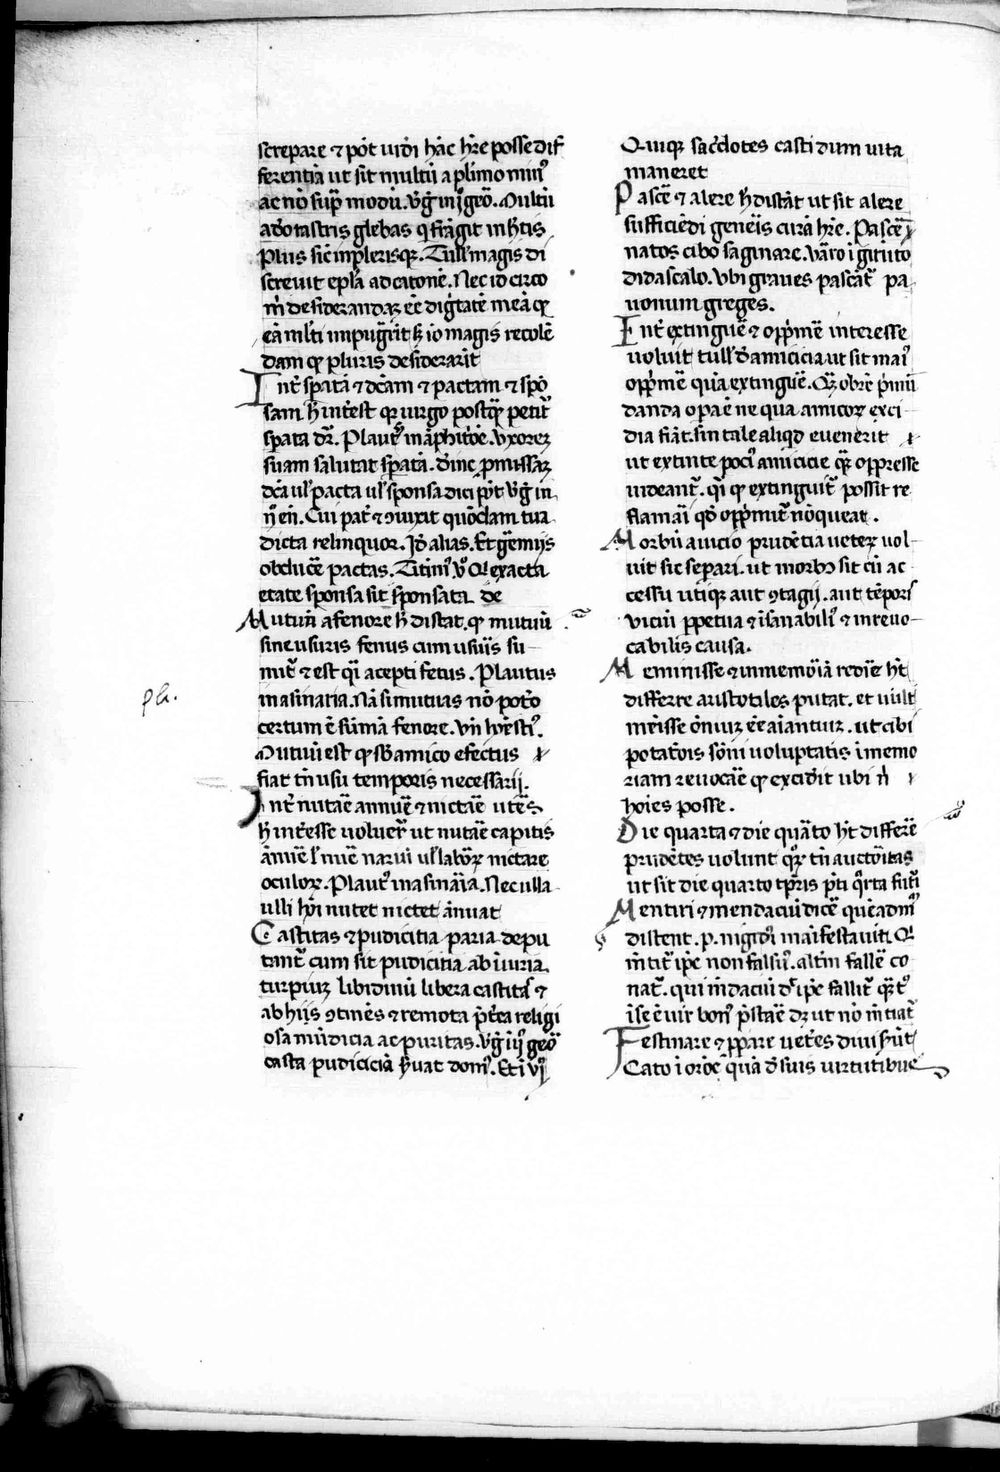 screpare ⁊ pōt uidi hāc hr̄e posse dif
ferentiā ut sit multū a plīmo min᷒
ac nō sup̄ modū. v̄g in j geō. Multū
adō rastris glebas q̄ frāgit inh̄tis
Plus sic inplerisqꝫ. Tull᷒ magis di
screuit ep̄la ad catonē. Nec id circo
m̄ desiderandaꝫ eē dig̅tatē meā qꝫ
eā ml̄ti impug̅rīt ꝫ io magis recolē
dam qꝫ pluris desiderarīt
Int̄ spatā ⁊ dc̄am ⁊ pactam ⁊ spō
sam h̄ int̄est qꝫ uirgo postqꝫ petit᷒
spata dr̄. Plaut᷒ in āphitōe. Vxoreꝫ
suam salutat spatā. d̄inc p̄missaꝫ
dc̄a ul᷒ pacta ul᷒ sponsa dici pōt v̄g in
ij en̄. Cui pat̄ ⁊ ꝯiuxit quōdam tua
dicta relinquor. Id̄ alias. Et ḡemijs
obducē pactas. Titini᷒ v̄o Q exacta
etate sponsa sit sponsata de
Mutuū a fenore h̄ distat. qꝫ mutuū
sine usuris fenus cum usuiis su
mit̄ ⁊ est q̄i acepti fetus. Plautus
in asinaria. Nā si mutuas nō potō
certum ē sūmā fenore. Vn̄ hōesti᷒.
Mutuū est qꝫ sb̄ amico efectus
fiat tn̄ usu temporis necessarij.
Int̄ nutāe annuē ⁊ nictāe ut̄es
h̄ int̄esse uoluer̄ ut nutāe capitis
ānuē l᷒ nuē narui ul᷒ labōꝝ nictare
oculoꝝ. Plaut᷒ in asināia. Nec ulla
ulli hōi nutet nictet ānuat
Castitas ⁊ pudicitia paria depu
tant̄ cum sit pudicitia ab iiuria
turpiuꝫ libidinū libera castitas ⁊
ab hiis ꝯtinēs ⁊ remota p̄t̄ea religi
osa mūdicia ac puritas. v̄g iij geō
casta pudiciciā s̄uat dom᷒. Et i vj
Quiqꝫ sac̄dotes casti dum uita
maneret
Pascē ⁊ alere h̄ distāt ut sit alere
sufficiēdi geneīs curā hr̄e. Pascē
natos cibo saginare. Vāro igitur ī to
didascalo. Vbi graues pascāt̄ pa
uonum greges.
Int̄ extinguē ⁊ opp̄mē interesse
uoluit tull᷒ d̄ amicicia ut sit mai᷒
opp̄mē quā extinguē. Qꝫ obrē p̄mū
danda opa ē ne qua amicoꝝ exci
dia fiāt. sin tale aliqd̄ euenerit
ut extinte poci᷒ amicicie qꝫ oppresse
uideant̄. q̄i qꝫ extinguit̄ possit re
flamāi qd̄ opp̄mit̄ nō queat.
Morbū a uicio prudētia ueteꝝ uol
uit sic separi. ut morbꝰ sit cū ac
cessu utiqꝫ aut ꝯtagij. aut tēpor᷒
Viciū ꝑpetua ⁊ isanabil᷒ ⁊ inreuo
cabilis causa.
Meminisse ⁊ inmemōiā redīe h̄t
differre aristotiles putat. et uult
mēisse ōniuꝫ eē aiantiuꝫ. ut cibi
potatōis sōni uoluptatis ī memo
riam reuocāe qꝫ excidīt ubi n̄
hoies posse.
Die quarta ⁊ die quāto h̄t differē
prudētes uolunt qꝫ tn̄ auctōitas
ut sit die quarto tp̄ris p̄ti q̄rta futī
Mentiri ⁊ mendaciū dicē quēadm᷒
distent. p. nigidi᷒ maifestauit. Q
m̄tit̄ ip̄e non fals᷒. altm̄ fallē co
nat̄. qui m̄daciū dr̄ ip̄e fallit̄ qꝫ t᷒
ise ē uir bon᷒ p̄stāe dꝫ ut nō m̄tiat̄
Festinare ⁊ ꝓpare uet̄es diuisūt
Cato ī orōe quā d̄ suis uirtutibus